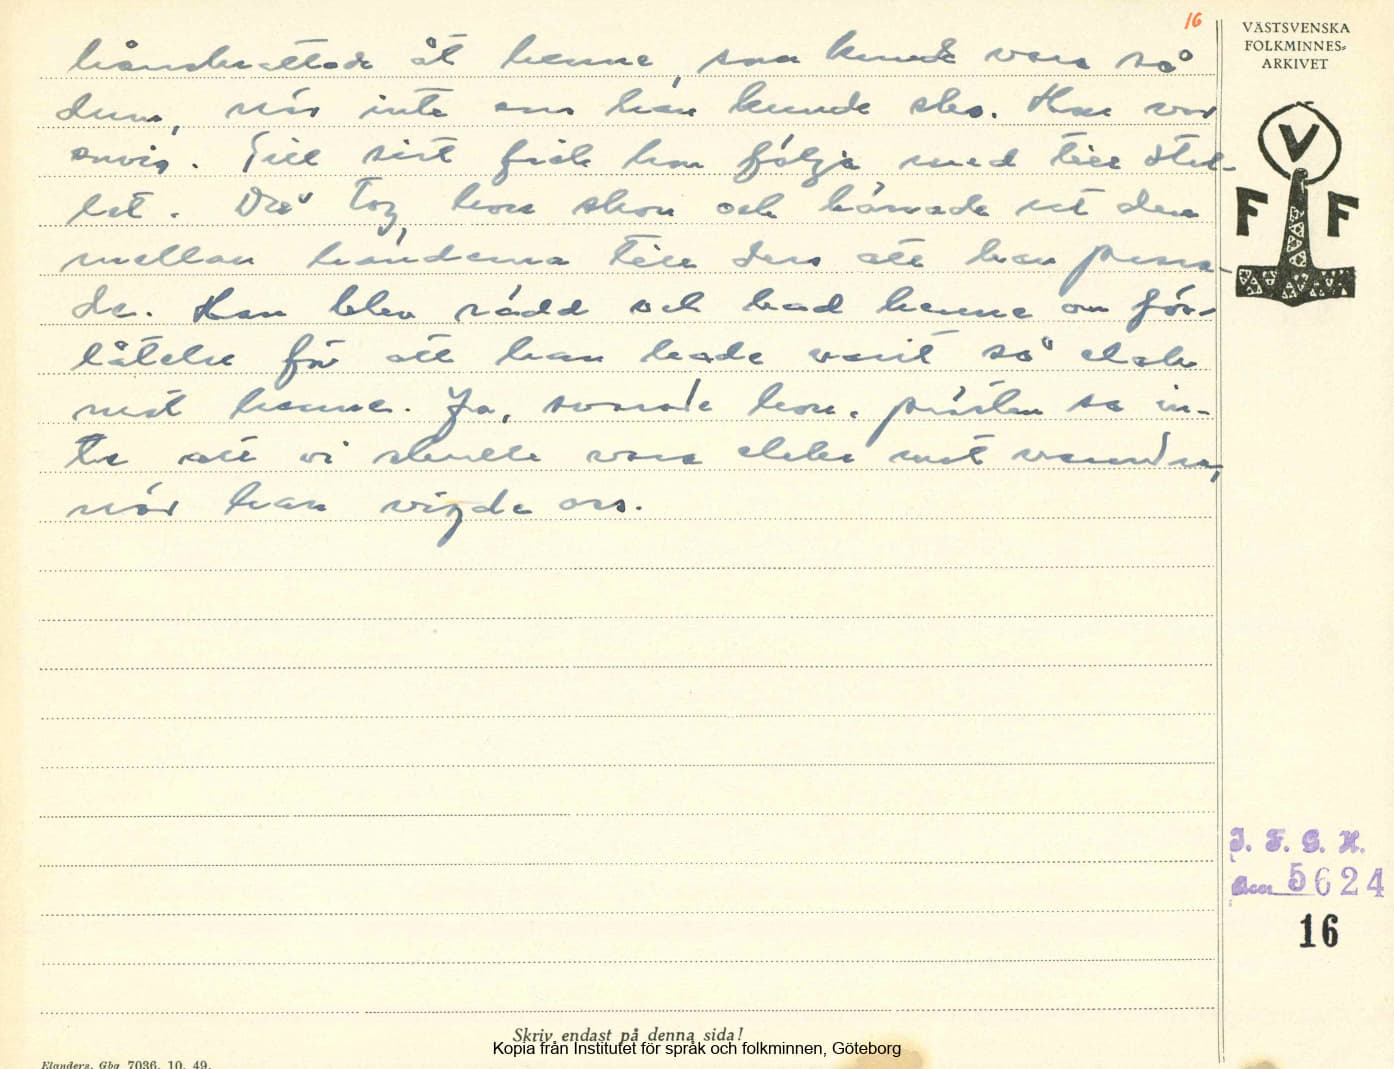 16
hånskrattade åt henne, som kunde vara så
dum, när inte ens han kunde sko. Han var
envis. Till sist fick hon följa med till stal-
let. Där tog hon skon och hånade ut den
mellan händerna till dess att han
de. Han blev rädd och bad henne om för-
låtelse för att han hade varit så elak
mot henne. Ja, svarade hon, prästen sa in-
te att vi skulle vara elaka mot varandra,
när han vigde oss.
VÄSTSVENSKA
FOLKMINNES-
ARKIVET
V
F F
I. F. G. H.
5624
16
Skriv endast på denna sida!
Kopia från Institutet för språk och folkminnen, Göteborg
Elanders, Gbg 7036. 10. 49.